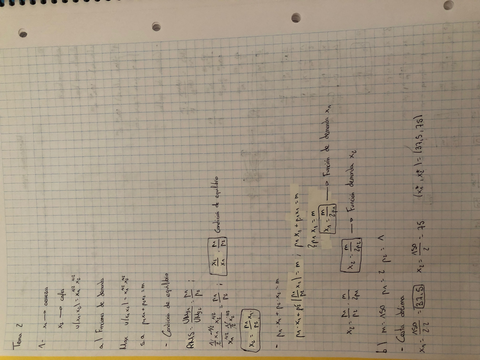 Tema 2
1-
x₂ → cafés
u(x₁, x₂) = x₁^1/2 x₂^1/2
a) Funciones de demanda
Max u(x₁, x₂) = x₁^1/2 x₂^1/2
s.a p₁x₁ + p₂x₂ = m
- Condición de equilibrio
x₂/x₁ = p₁/p₂ Condición de equilibrio
x₂ = p₁/p₂ x₁
- p₁x₁ + p₂x₂ = m
p₁x₁ + p₂ [p₁/p₂ x₁] = m ; p₁x₁ + p₁x₁ = m
2p₁x₁ = m
x₁ = m/2p₁ → Función de demanda x₁
x₂ = m/2p₂ → Función demanda x₂
b) m = 150 p₁ = 2 p₂ = 1
- Cesta óptima
x₁ = 150/2·2 = 37,5 x₂ = 150/2 = 75 (x₁*, x₂*) = (37,5, 75)